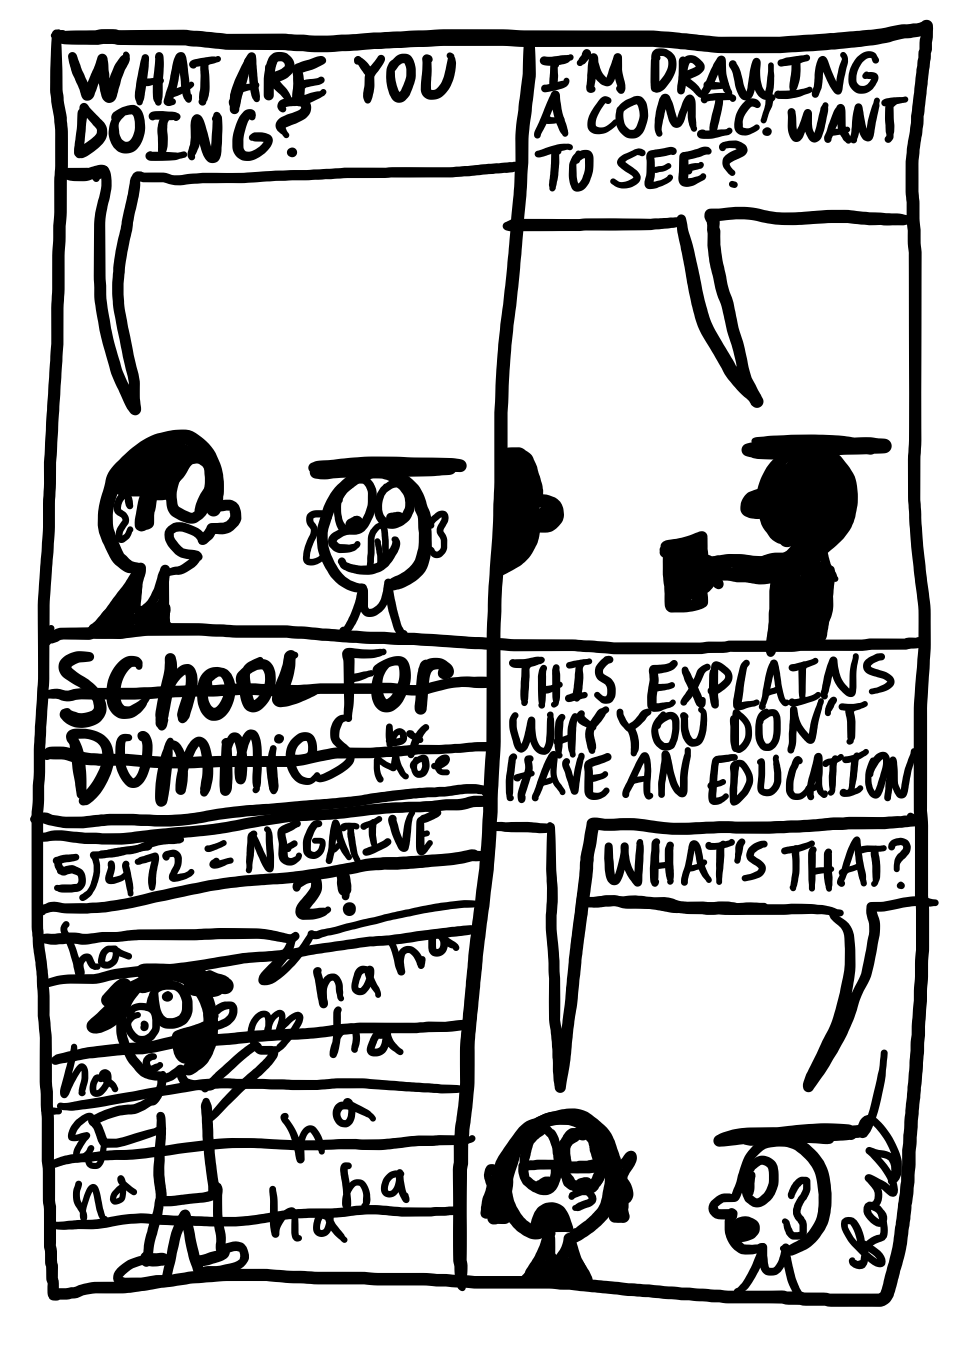 WHAT ARE YOU
DOING?
I'M DRAWING
A COMIC! WANT
TO SEE?
SCHOOL FOR
DUMMIES by
Moe
5/472 = NEGATIVE
2!
ha
ha
ha
ha
ha
ha
ha
ha
ha
THIS EXPLAINS
WHY YOU DON'T
HAVE AN EDUCATION
WHAT'S THAT?